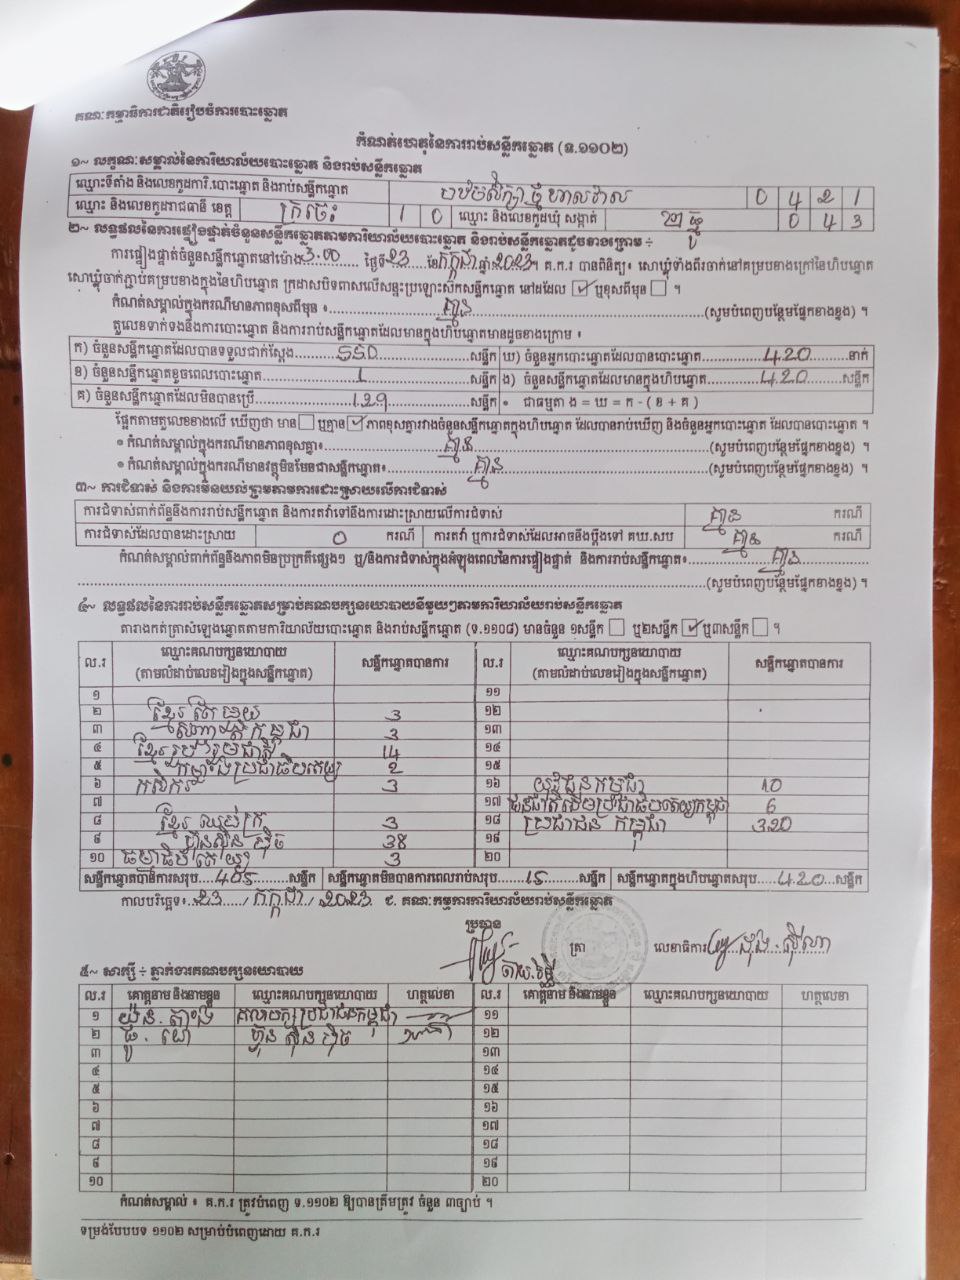 គណៈកម្មាធិការជាតិរៀបចំការបោះឆ្នោត
កំណត់ហេតុនៃការរាប់សន្លឹកឆ្នោត (ទ.១១០២)
១~ លក្ខណៈសម្គាល់នៃការិយាល័យបោះឆ្នោត និងរាប់សន្លឹកឆ្នោត
ឈ្មោះទីតាំង និងលេខកូដការិ.បោះឆ្នោត និងរាប់សន្លឹកឆ្នោត 0 4 2 1
ឈ្មោះ និងលេខកូដរាជធានី ខេត្ត ក្រចេះ 1 0 ឈ្មោះ និងលេខកូដឃុំ សង្កាត់ 0 4 3
២~ លទ្ធផលនៃការផ្ទៀងផ្ទាត់ចំនួនសន្លឹកឆ្នោតតាមការិយាល័យបោះឆ្នោត និងរាប់សន្លឹកឆ្នោតដូចខាងក្រោម ÷
ការផ្ទៀងផ្ទាត់ចំនួនសន្លឹកឆ្នោតនៅម៉ោង 3:00 ថ្ងៃទី 23 ខែ កក្កដា ឆ្នាំ 2023 ។ គ.ក.រ បានពិនិត្យ៖ សោឃ្លុំទាំងពីរចាក់នៅគម្របខាងក្រៅនៃហិបឆ្នោត
សោឃ្លុំចាក់ភ្ជាប់គម្របខាងក្នុងនៃហិបឆ្នោត ក្រដាសបិទពាសលើសន្ទះប្រឡោះស៊កសន្លឹកឆ្នោត នៅដដែល ☑ ឬខុសពីមុន ☐ ។
កំណត់សម្គាល់ក្នុងករណីមានភាពខុសពីមុន ៖ គ្មាន (សូមបំពេញបន្ថែមផ្នែកខាងខ្នង) ។
តួលេខទាក់ទងនឹងការបោះឆ្នោត និងការរាប់សន្លឹកឆ្នោតដែលមានក្នុងហិបឆ្នោតមានដូចខាងក្រោម ៖
ក) ចំនួនសន្លឹកឆ្នោតដែលបានទទួលជាក់ស្តែង 550 សន្លឹក ឃ) ចំនួនអ្នកបោះឆ្នោតដែលបានបោះឆ្នោត 420 នាក់
ខ) ចំនួនសន្លឹកឆ្នោតខូចពេលបោះឆ្នោត 1 សន្លឹក ង) ចំនួនសន្លឹកឆ្នោតដែលមានក្នុងហិបឆ្នោត 420 សន្លឹក
គ) ចំនួនសន្លឹកឆ្នោតដែលមិនបានប្រើ 129 សន្លឹក • ជាធម្មតា ង = ឃ = ក - ( ខ + គ )
ផ្អែកតាមតួលេខខាងលើ ឃើញថា មាន ☐ ឬគ្មាន ☑ ភាពខុសគ្នារវាងចំនួនសន្លឹកឆ្នោតក្នុងហិបឆ្នោត ដែលបានរាប់ឃើញ និងចំនួនអ្នកបោះឆ្នោត ដែលបានបោះឆ្នោត ។
• កំណត់សម្គាល់ក្នុងករណីមានភាពខុសគ្នា៖ គ្មាន (សូមបំពេញបន្ថែមផ្នែកខាងខ្នង) ។
• កំណត់សម្គាល់ក្នុងករណីមានវត្ថុមិនមែនជាសន្លឹកឆ្នោត៖ គ្មាន (សូមបំពេញបន្ថែមផ្នែកខាងខ្នង) ។
៣~ ការជំទាស់ និងការមិនយល់ព្រមតាមការដោះស្រាយលើការជំទាស់
ការជំទាស់ពាក់ព័ន្ធនឹងការរាប់សន្លឹកឆ្នោត និងការតវ៉ាទៅនឹងការដោះស្រាយលើការជំទាស់ គ្មាន ករណី
ការជំទាស់ដែលបានដោះស្រាយ 0 ករណី ការតវ៉ា ឬការជំទាស់ដែលអាចនឹងប្តឹងទៅ គឃ.សប គ្មាន ករណី
កំណត់សម្គាល់ពាក់ព័ន្ធនឹងភាពមិនប្រក្រតីផ្សេងៗ ឬ/និងការជំទាស់ក្នុងអំឡុងពេលនៃការផ្ទៀងផ្ទាត់ និងការរាប់សន្លឹកឆ្នោត៖ គ្មាន
(សូមបំពេញបន្ថែមផ្នែកខាងខ្នង) ។
៤~ លទ្ធផលនៃការរាប់សន្លឹកឆ្នោតសម្រាប់គណបក្សនយោបាយនីមួយៗតាមការិយាល័យរាប់សន្លឹកឆ្នោត
តារាងកត់ត្រាសំឡេងឆ្នោតតាមការិយាល័យបោះឆ្នោត និងរាប់សន្លឹកឆ្នោត (ទ.១១០៨) មានចំនួន ១សន្លឹក ☐ ឬ២សន្លឹក ☑ ឬ៣សន្លឹក ☐ ។
ល.រ ឈ្មោះគណបក្សនយោបាយ (តាមលំដាប់លេខរៀងក្នុងសន្លឹកឆ្នោត) សន្លឹកឆ្នោតបានការ ល.រ ឈ្មោះគណបក្សនយោបាយ (តាមលំដាប់លេខរៀងក្នុងសន្លឹកឆ្នោត) សន្លឹកឆ្នោតបានការ
១ ១១
២ ខ្មែរតែមួយ 3 ១២
៣ សញ្ជាតិកម្ពុជា 3 ១៣
៤ ខ្មែររួបរួមជាតិ 14 ១៤
៥ កម្លាំងប្រជាធិបតេយ្យ 2 ១៥
៦ កសិករ 3 ១៦ យុវជនកម្ពុជា 10
៧ ១៧ ជនជាតិដើមប្រជាធិបតេយ្យកម្ពុជា 6
៨ ខ្មែរឈប់ក្រ 3 ១៨ ប្រជាជនកម្ពុជា 320
៩ ហ៊្វុនស៊ិនប៉ិច 38 ១៩
១០ ធម្មាធិបតេយ្យ 3 ២០
សន្លឹកឆ្នោតបានការសរុប 405 សន្លឹក សន្លឹកឆ្នោតមិនបានការពេលរាប់សរុប 15 សន្លឹក សន្លឹកឆ្នោតក្នុងហិបឆ្នោតសរុប 420 សន្លឹក
កាលបរិច្ឆេទ៖ 23 / កក្កដា / 2023 ៩. គណៈកម្មការការិយាល័យរាប់សន្លឹកឆ្នោត
ប្រធាន
ត្រា លេខាធិការ
៥~ សាក្សី ÷ ភ្នាក់ងារគណបក្សនយោបាយ
ល.រ គោត្តនាម និងនាមខ្លួន ឈ្មោះគណបក្សនយោបាយ ហត្ថលេខា ល.រ គោត្តនាម និងនាមខ្លួន ឈ្មោះគណបក្សនយោបាយ ហត្ថលេខា
១ គណបក្សប្រជាជនកម្ពុជា ១១
២ ហ៊្វុនស៊ិនប៉ិច ១២
៣ ១៣
៤ ១៤
៥ ១៥
៦ ១៦
៧ ១៧
៨ ១៨
៩ ១៩
១០ ២០
កំណត់សម្គាល់ ៖ គ.ក.រ ត្រូវបំពេញ ទ.១១០២ ឱ្យបានត្រឹមត្រូវ ចំនួន ៣ច្បាប់ ។
ទម្រង់បែបបទ ១១០២ សម្រាប់បំពេញដោយ គ.ក.រ